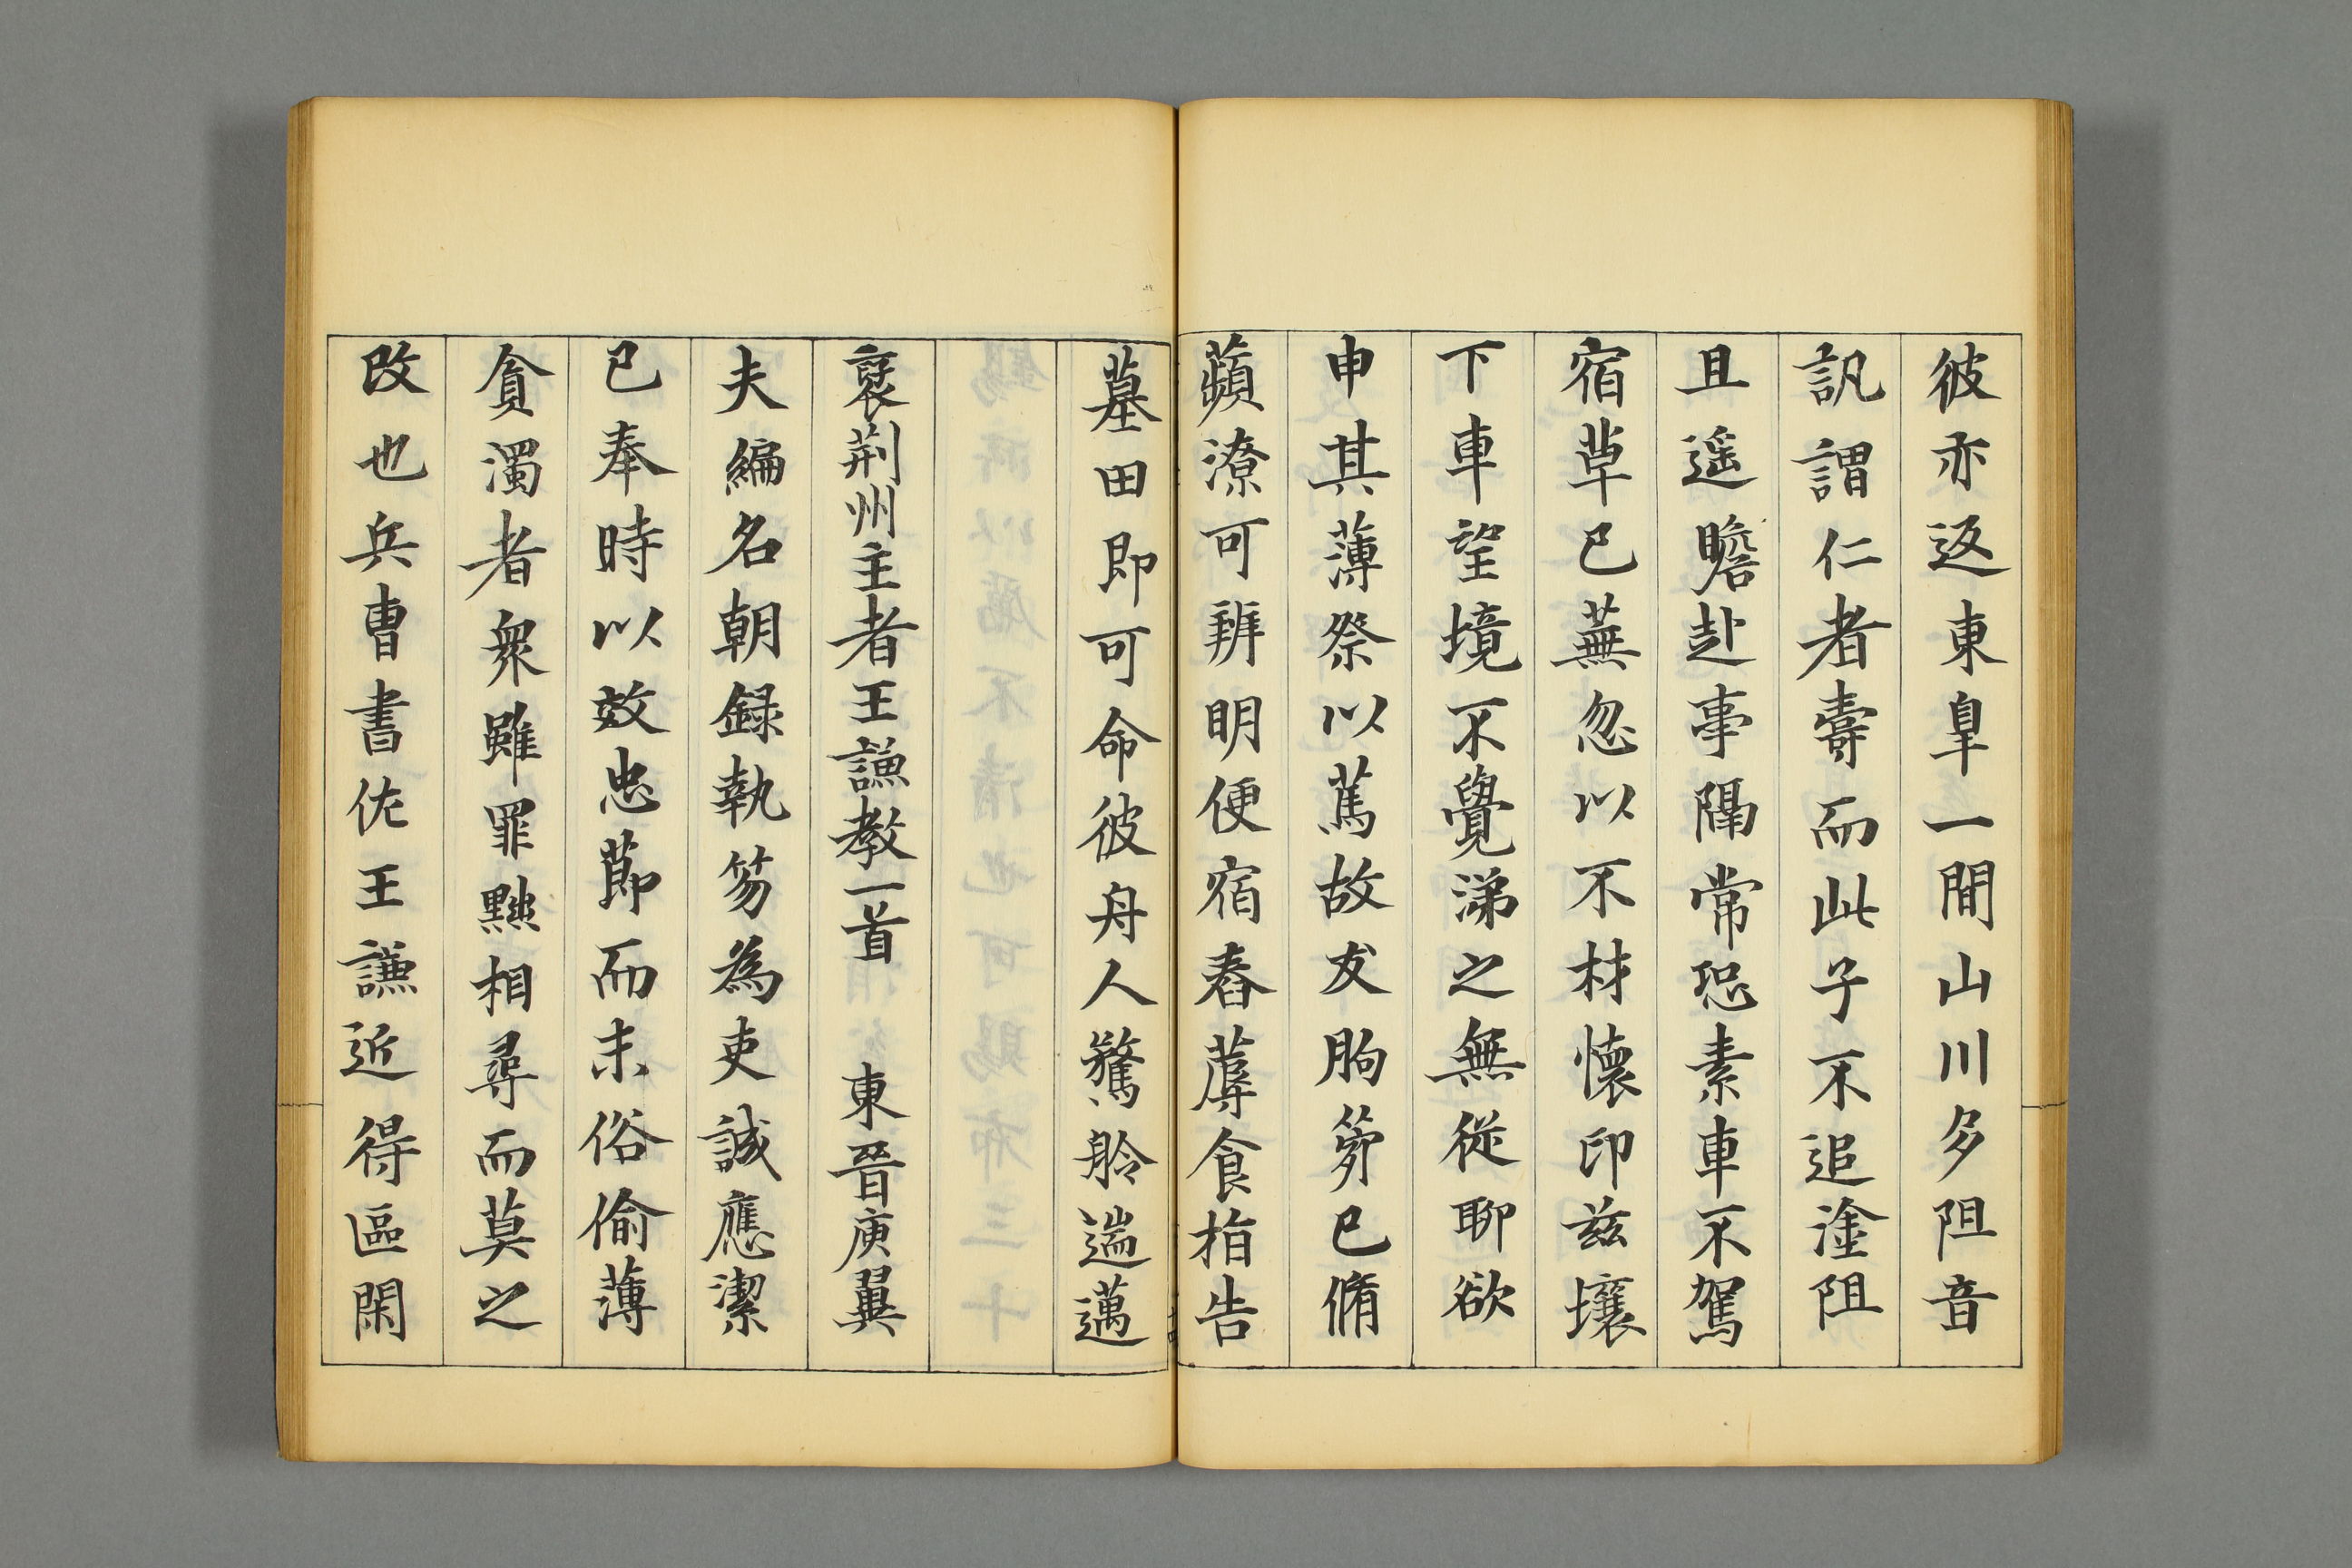 彼亦返東皐一間山川多阻音
訊謂仁者壽而此子不追淦阻
且遥瞻赴事隔常恐素車不駕
宿草已蕪忽以不材懷印兹壤
下車望境不覺涕之無從聊欲
申其薄祭以蔦故友朐筯已脩
蘋潦可辨明便宿舂蓐食指告
墓田即可命彼舟人驚舲遄邁
裦荆州主者王謙教一首 東晉庾翼
夫編名朝録執笏為吏誠應潔
已奉時以效忠莭而末俗偷薄
貪濁者衆雖罪黜相尋而莫之
改也兵曹書佐王謙近得區閑